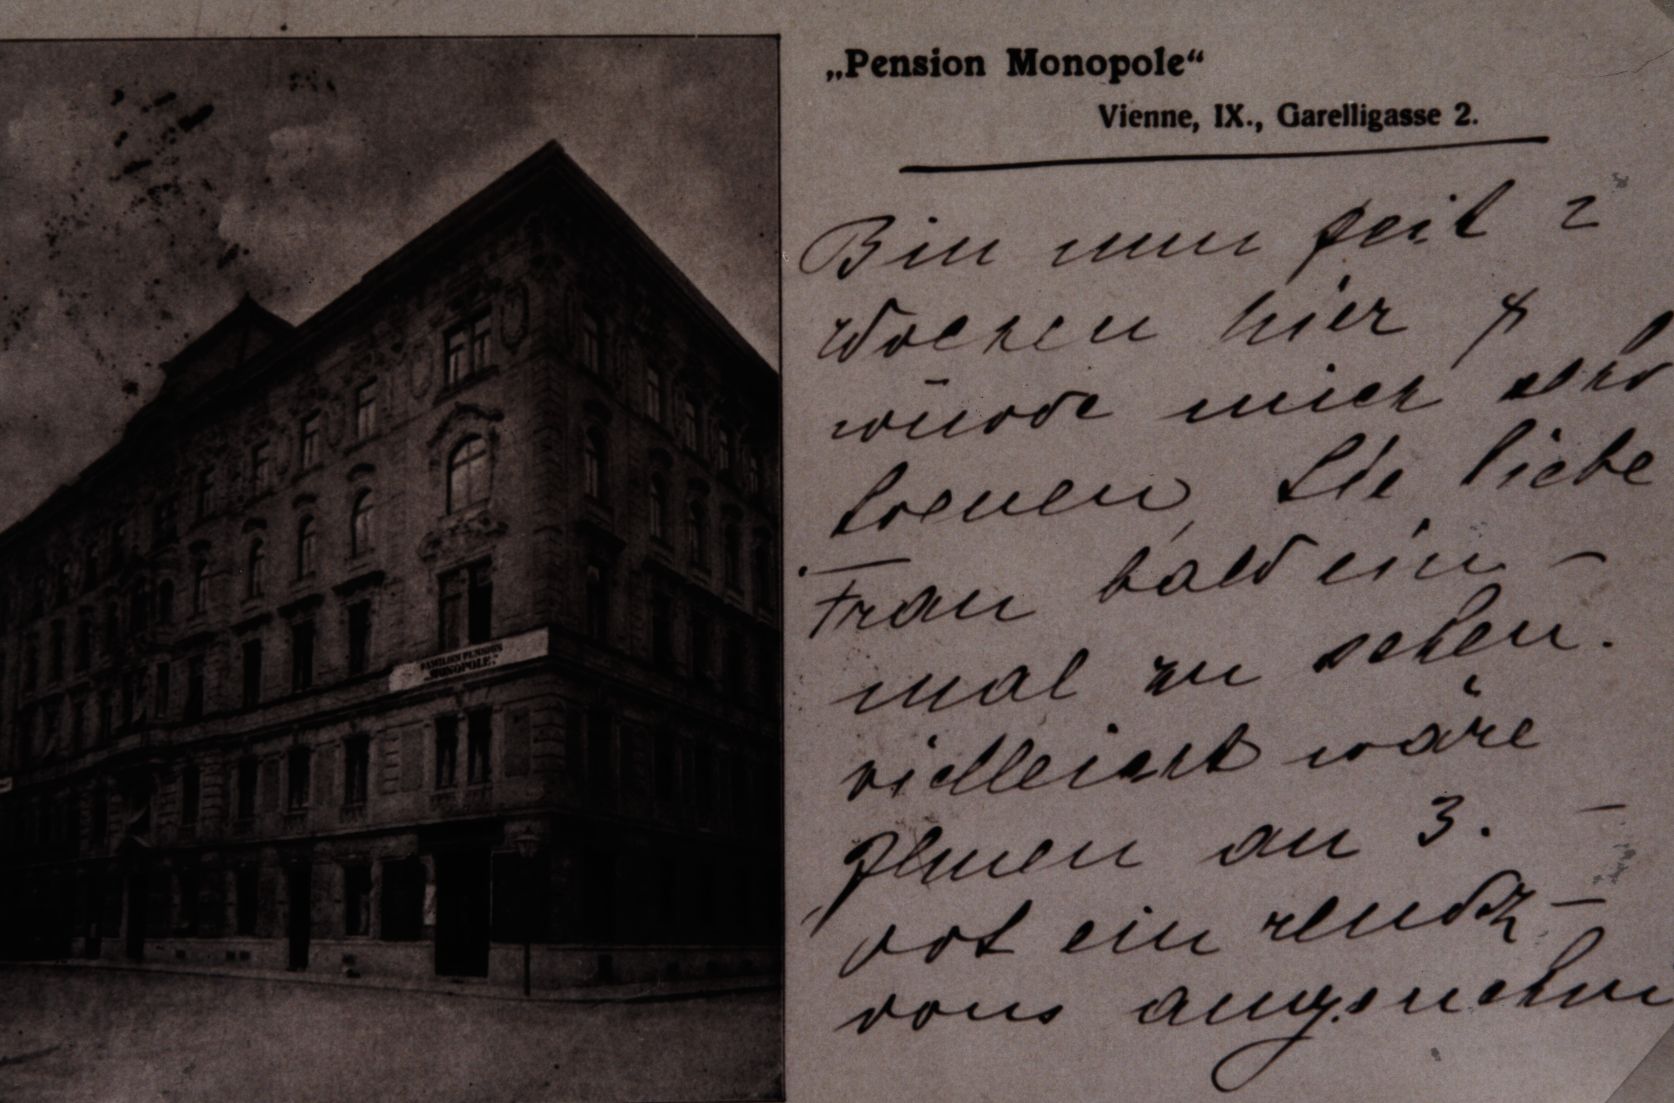 „Pension Monopole“
Vienne, IX., Garelligasse 2.
Bin nun seit 2
Wochen hier &
würde mich sehr
freuen, Sie liebe
Frau bald ein-
mal zu sehen.
vielleicht wäre
Ihnen an 3. -
ort ein rendez-
vous angenehm
FAMILIEN PENSION
"MONOPOLE."